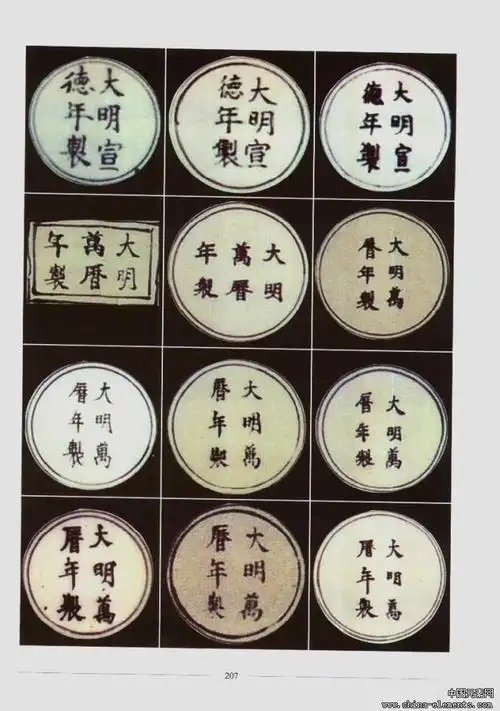 大明宣
德年製
大明宣
德年製
大明宣
德年製
大明
萬曆
年製
大明
萬曆
年製
大明萬
曆年製
大明萬
曆年製
大明萬
曆年製
大明萬
曆年製
大明萬
曆年製
大明萬
曆年製
大明萬
曆年製
207
中国元素网
www.china-elements.com